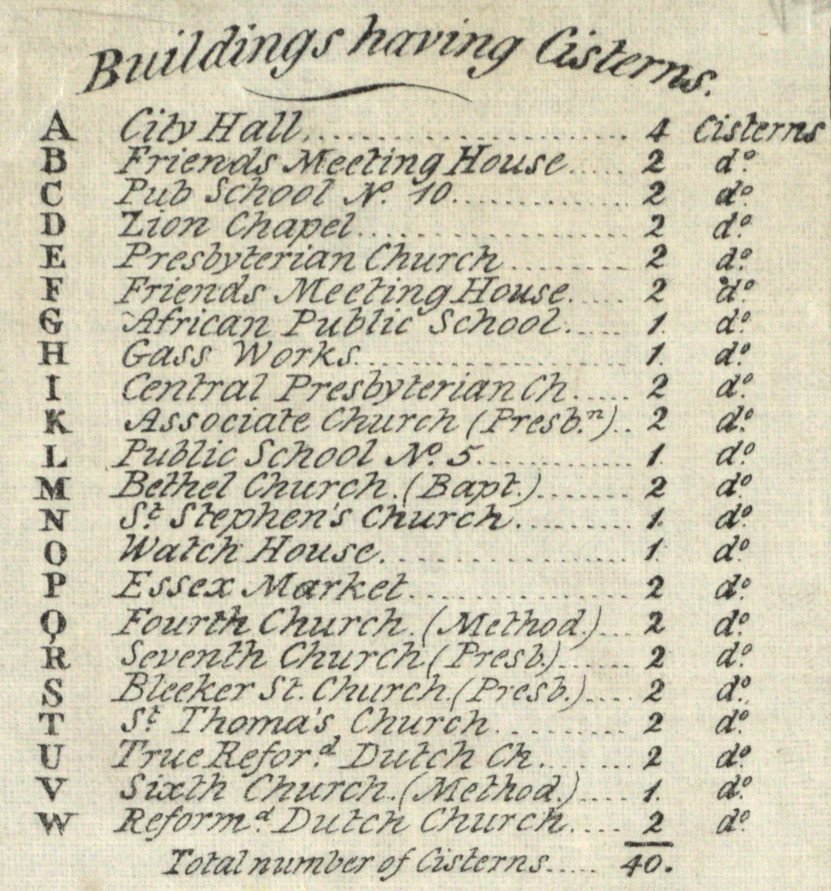 Buildings having Cisterns.
A City Hall 4 Cisterns
B Friends Meeting House 2 do.
C Pub School No. 10 2 do.
D Zion Chapel 2 do.
E Presbyterian Church 2 do.
F Friends Meeting House 2 do.
G African Public School 1 do.
H Gass Works 1 do.
I Central Presbyterian Ch. 2 do.
K Associate Church (Presb.n) 2 do.
L Public School No. 5 1 do.
M Bethel Church (Bapt.) 2 do.
N St. Stephen's Church 1 do.
O Watch House 1 do.
P Essex Market 2 do.
Q Fourth Church (Method.) 2 do.
R Seventh Church (Presb.) 2 do.
S Bleeker St. Church (Presb.) 2 do.
T St. Thoma's Church 2 do.
U True Refor.d Dutch Ch. 2 do.
V Sixth Church (Method.) 1 do.
W Reform.d Dutch Church 2 do.
Total number of Cisterns 40.